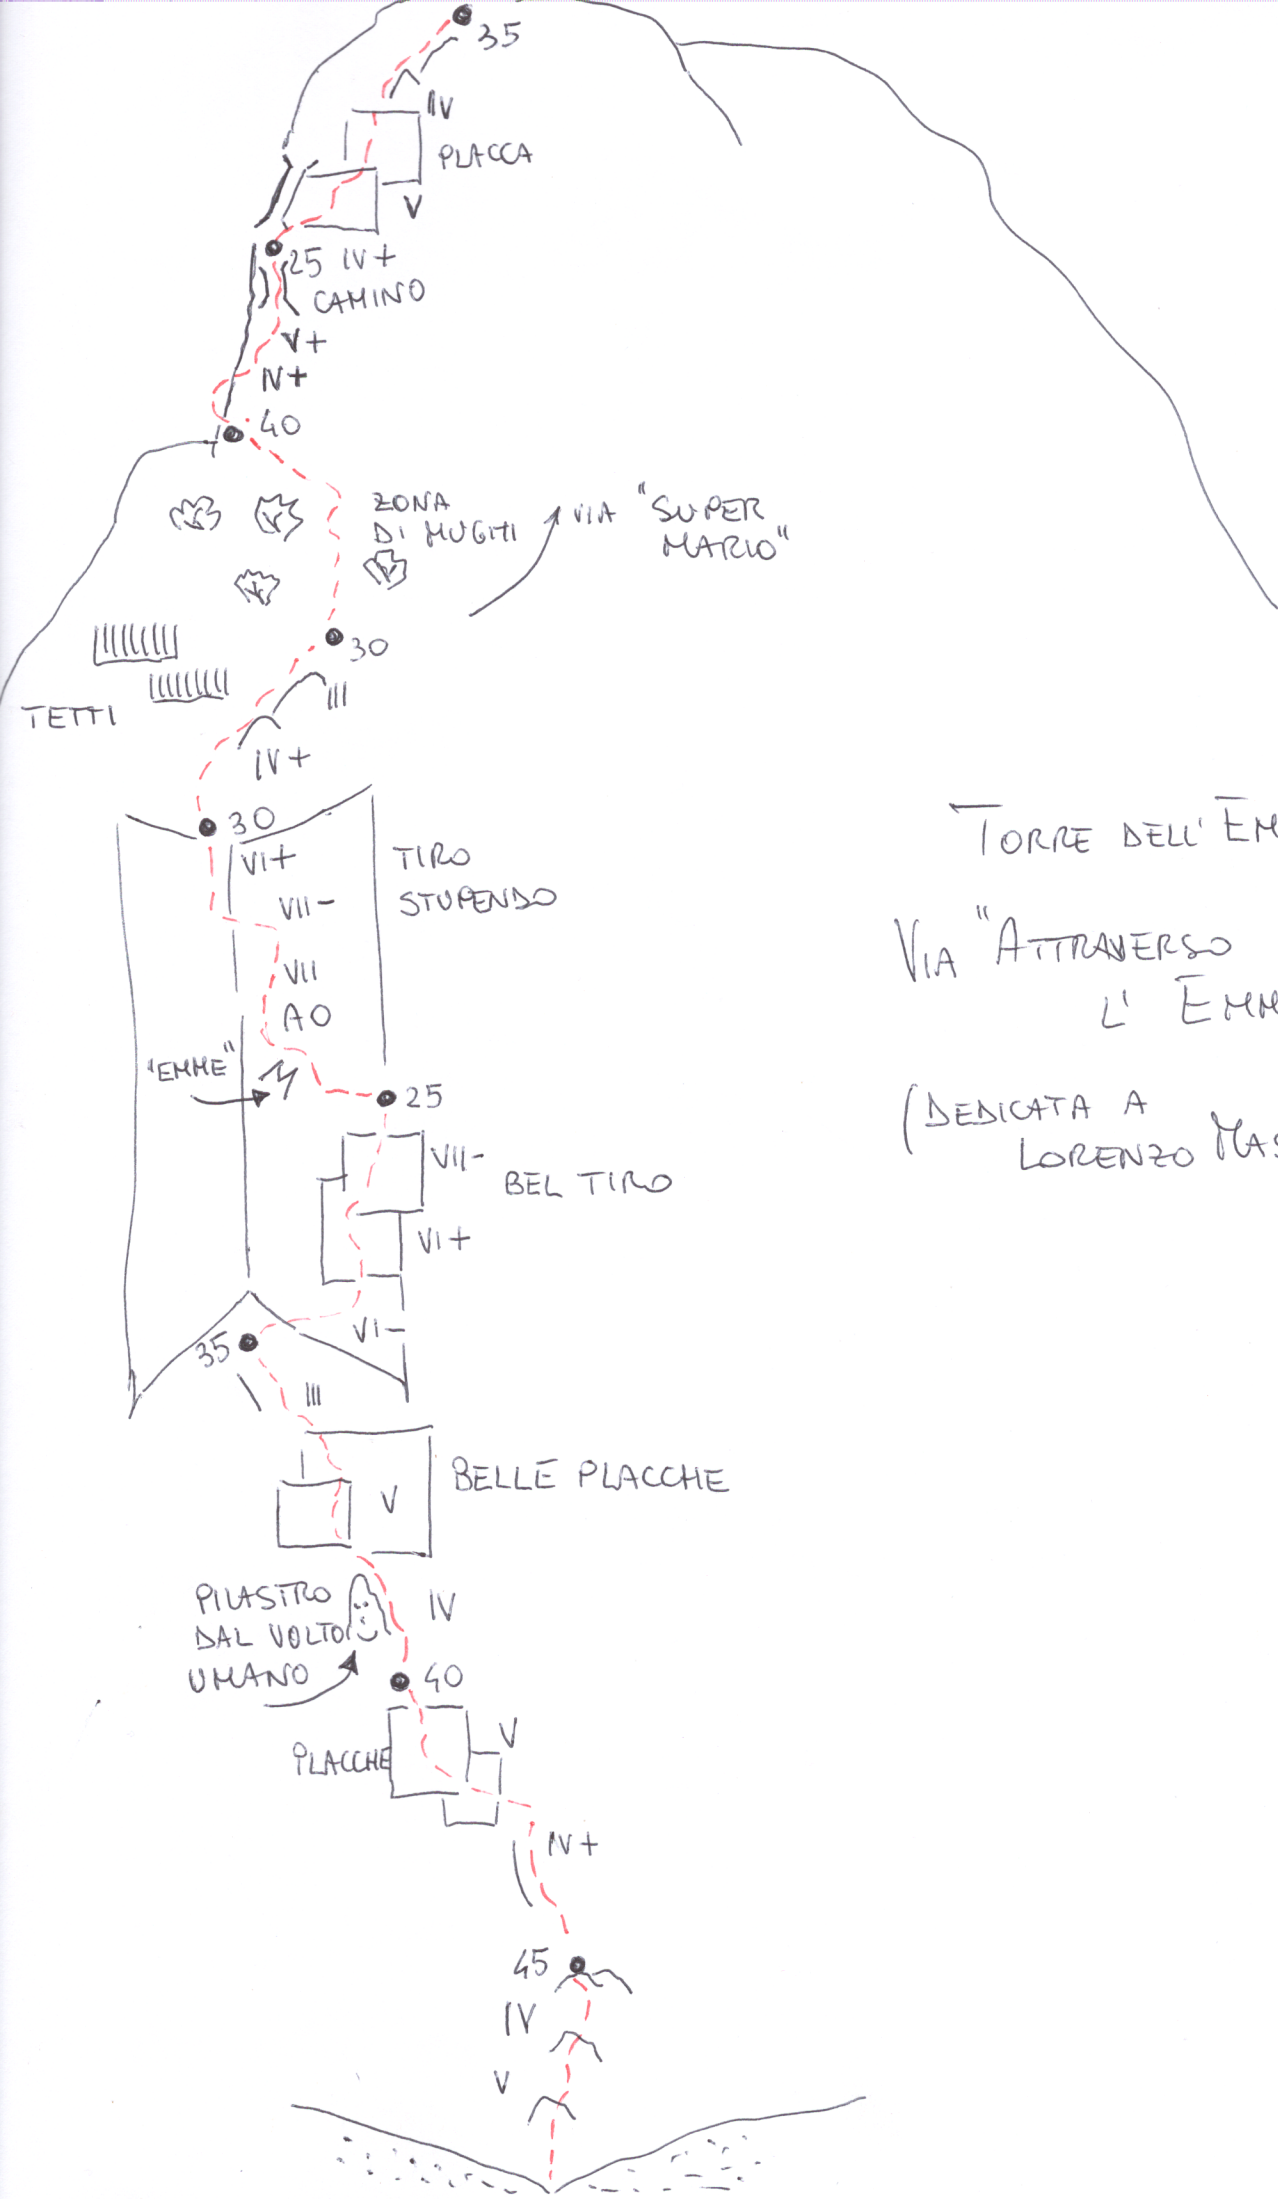 35
IV
PLACCA
V
25 IV+
CAMINO
V+
IV+
40
ZONA
DI MUGHI
VIA "SUPER
MARIO"
30
III
TETTI
IV+
30
VI+
TIRO
STUPENDO
VII-
VII
A0
"EMME"
M
25
VII-
BEL TIRO
VI+
VI-
35
III
BELLE PLACCHE
V
PILASTRO
DAL VOLTO
UMANO
IV
40
V
PLACCHE
IV+
45
IV
V
TORRE DELL'EM
VIA "ATTRAVERSO
L' EMM
(DEDICATA A
LORENZO MAS